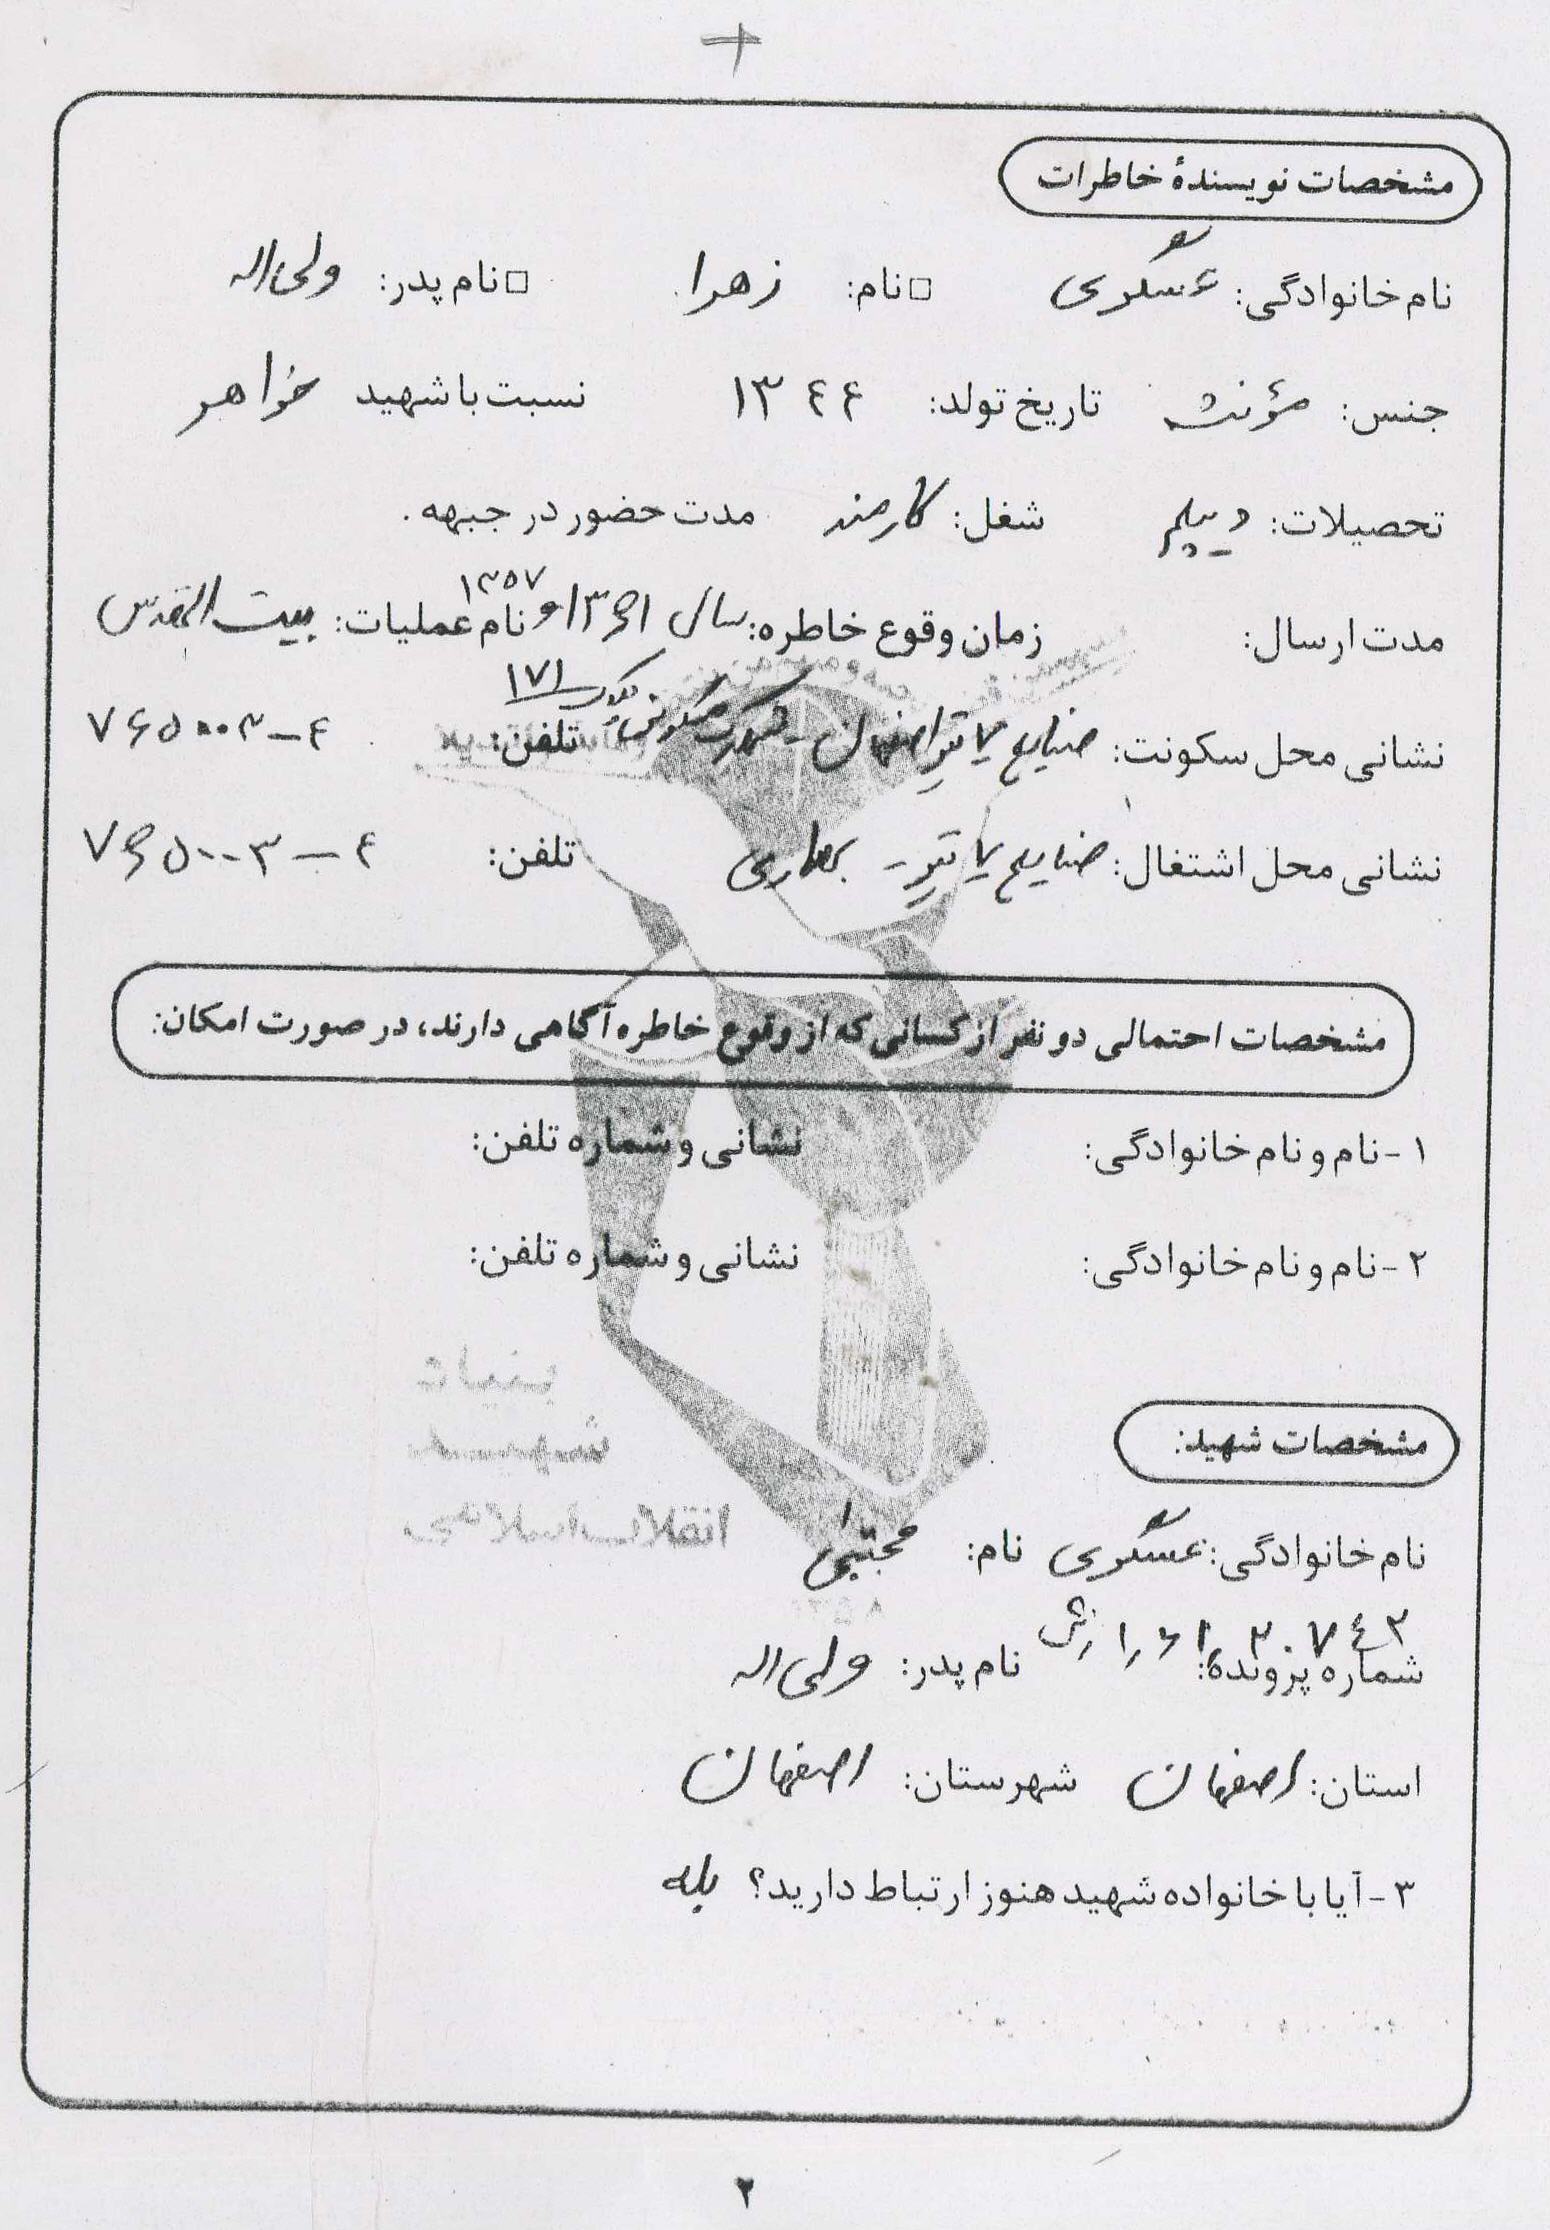 مشخصات نویسندهٔ خاطرات
نام خانوادگی: عسگری □ نام: زهرا □ نام پدر: ولی اله
جنس: مؤنث تاریخ تولد: ۱۳۴۴ نسبت با شهید خواهر
تحصیلات: دیپلم شغل: کارمند مدت حضور در جبهه.
مدت ارسال: زمان وقوع خاطره: سال ۱۳۶۱ و ۱۳۵۷ نام عملیات: بیت المقدس
نشانی محل سکونت: صنایع اصفهان - شهرک مسکونی بلوک ۱۷۱ تلفن: ۷۶۵۰۰۳-۴
نشانی محل اشتغال: صنایع - بهیاری تلفن: ۷۶۵۰۰۳-۴
مشخصات احتمالی دو نفر از کسانی که از وقوع خاطره آگاهی دارند، در صورت امکان:
۱- نام و نام خانوادگی: نشانی و شماره تلفن:
۲- نام و نام خانوادگی: نشانی و شماره تلفن:
مشخصات شهید:
نام خانوادگی: عسگری نام: مجتبی
شماره پرونده: نام پدر: ولی اله
استان: اصفهان شهرستان: اصفهان
۳- آیا با خانواده شهید هنوز ارتباط دارید؟ بله
۲